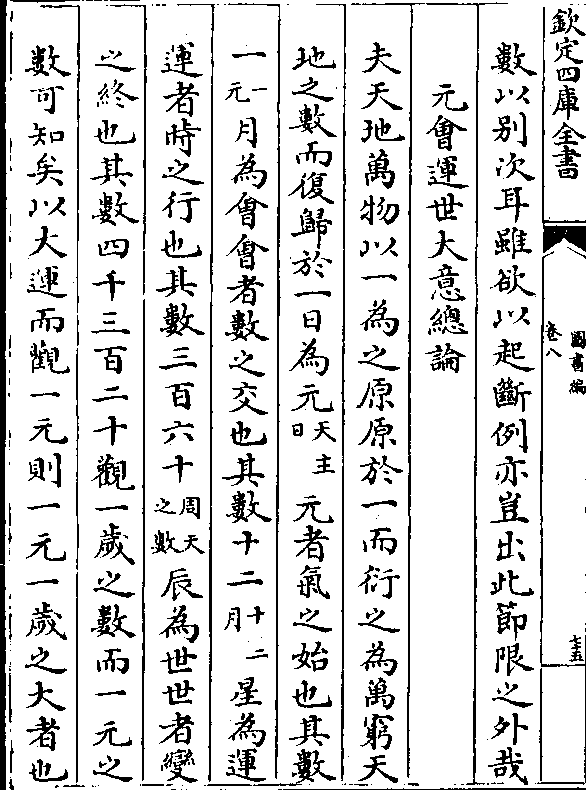 欽定四庫全書
圖書編
卷八
七五
數以别次耳雖欲以起斷例亦豈出此節限之外哉
元會運世大意總論
夫天地萬物以一為之原原於一而衍之為萬窮天
地之數而復歸於一日為元天主日元者氣之始也其數
一一元月為會會者數之交也其數十二十二月星為運
運者時之行也其數三百六十周天之數辰為世世者變
之終也其數四千三百二十觀一歲之數而一元之
數可知矣以大運而觀一元則一元一歲之大者也